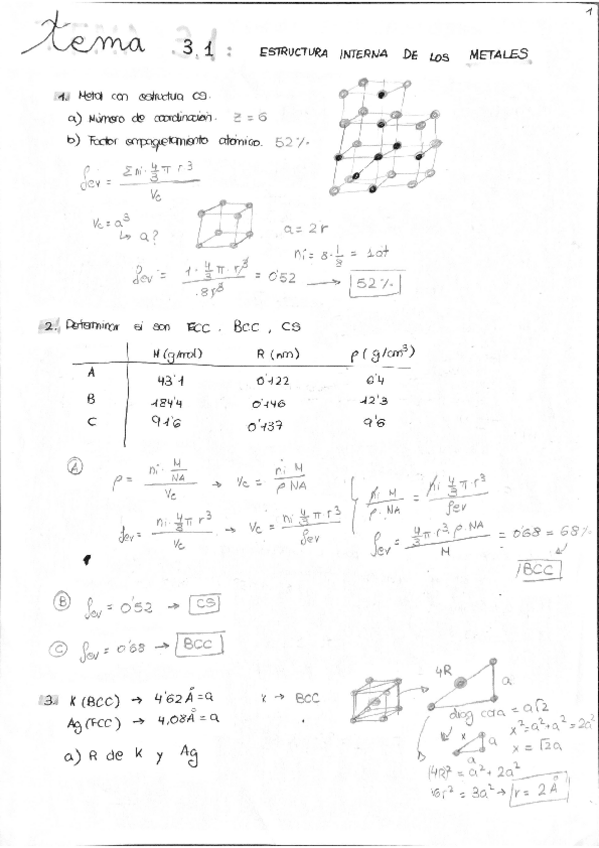 1
tema 3.1: ESTRUCTURA INTERNA DE LOS METALES
1. Metal con estructura CS.
a) Número de coordinación. z = 6
b) Factor empaquetamiento atómico. 52%
fev = Σni·4/3 π r³ / Vc
Vc = a³
↳ a?
a = 2r
ni = 8·1/8 = 1 at
fev = 1·4/3 π·r³ / 8r³ = 0'52 → 52%
2. Determinar si son FCC, BCC, CS
M (g/mol) R (nm) ρ (g/cm³)
A 43'1 0'122 6'4
B 184'4 0'146 12'3
C 91'6 0'137 9'6
A ρ = ni·M/NA / Vc → Vc = ni M / ρ NA
ni M / ρ·NA = ni 4/3 π r³ / fev
fev = ni·4/3 π r³ / Vc → Vc = ni 4/3 π r³ / fev
fev = 4/3 π r³ ρ·NA / M = 0'68 = 68%
BCC
B fev = 0'52 → CS
C fev = 0'68 → BCC
3. K (BCC) → 4'62 Å = a K → BCC
Ag (FCC) → 4,08 Å = a
a) R de K y Ag
4R a
diag cara = a√2
x² = a² + a² = 2a²
x a
a
x = √2a
(4R)² = a² + 2a²
16r² = 3a² → r = 2 Å